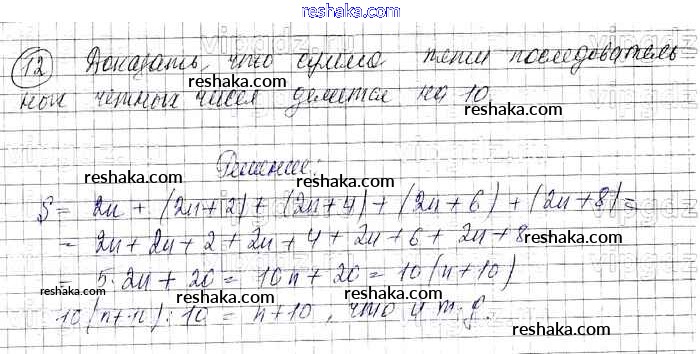 reshaka.com
12 Доказать, что сумма пяти последователь
ных чётных чисел делится на 10.
reshaka.com
reshaka.com
Решение:
reshaka.com
S = 2n + (2n+2) + (2n+4) + (2n+6) + (2n+8) =
= 2n + 2n + 2 + 2n + 4 + 2n + 6 + 2n + 8
reshaka.com
= 5·2n + 20 = 10n + 20 = 10(n+10)
reshaka.com
reshaka.com
: 10 = n+10, что и т.д.
reshaka.com